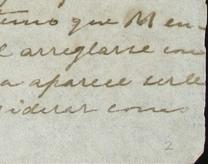 timo que M en
arreglarse con
a aparece serle
siderar como
2